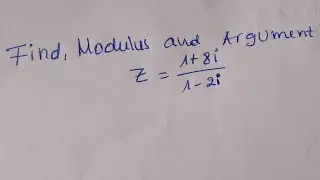 Find, Modulus and Argument
Z = 1+8i / 1-2i